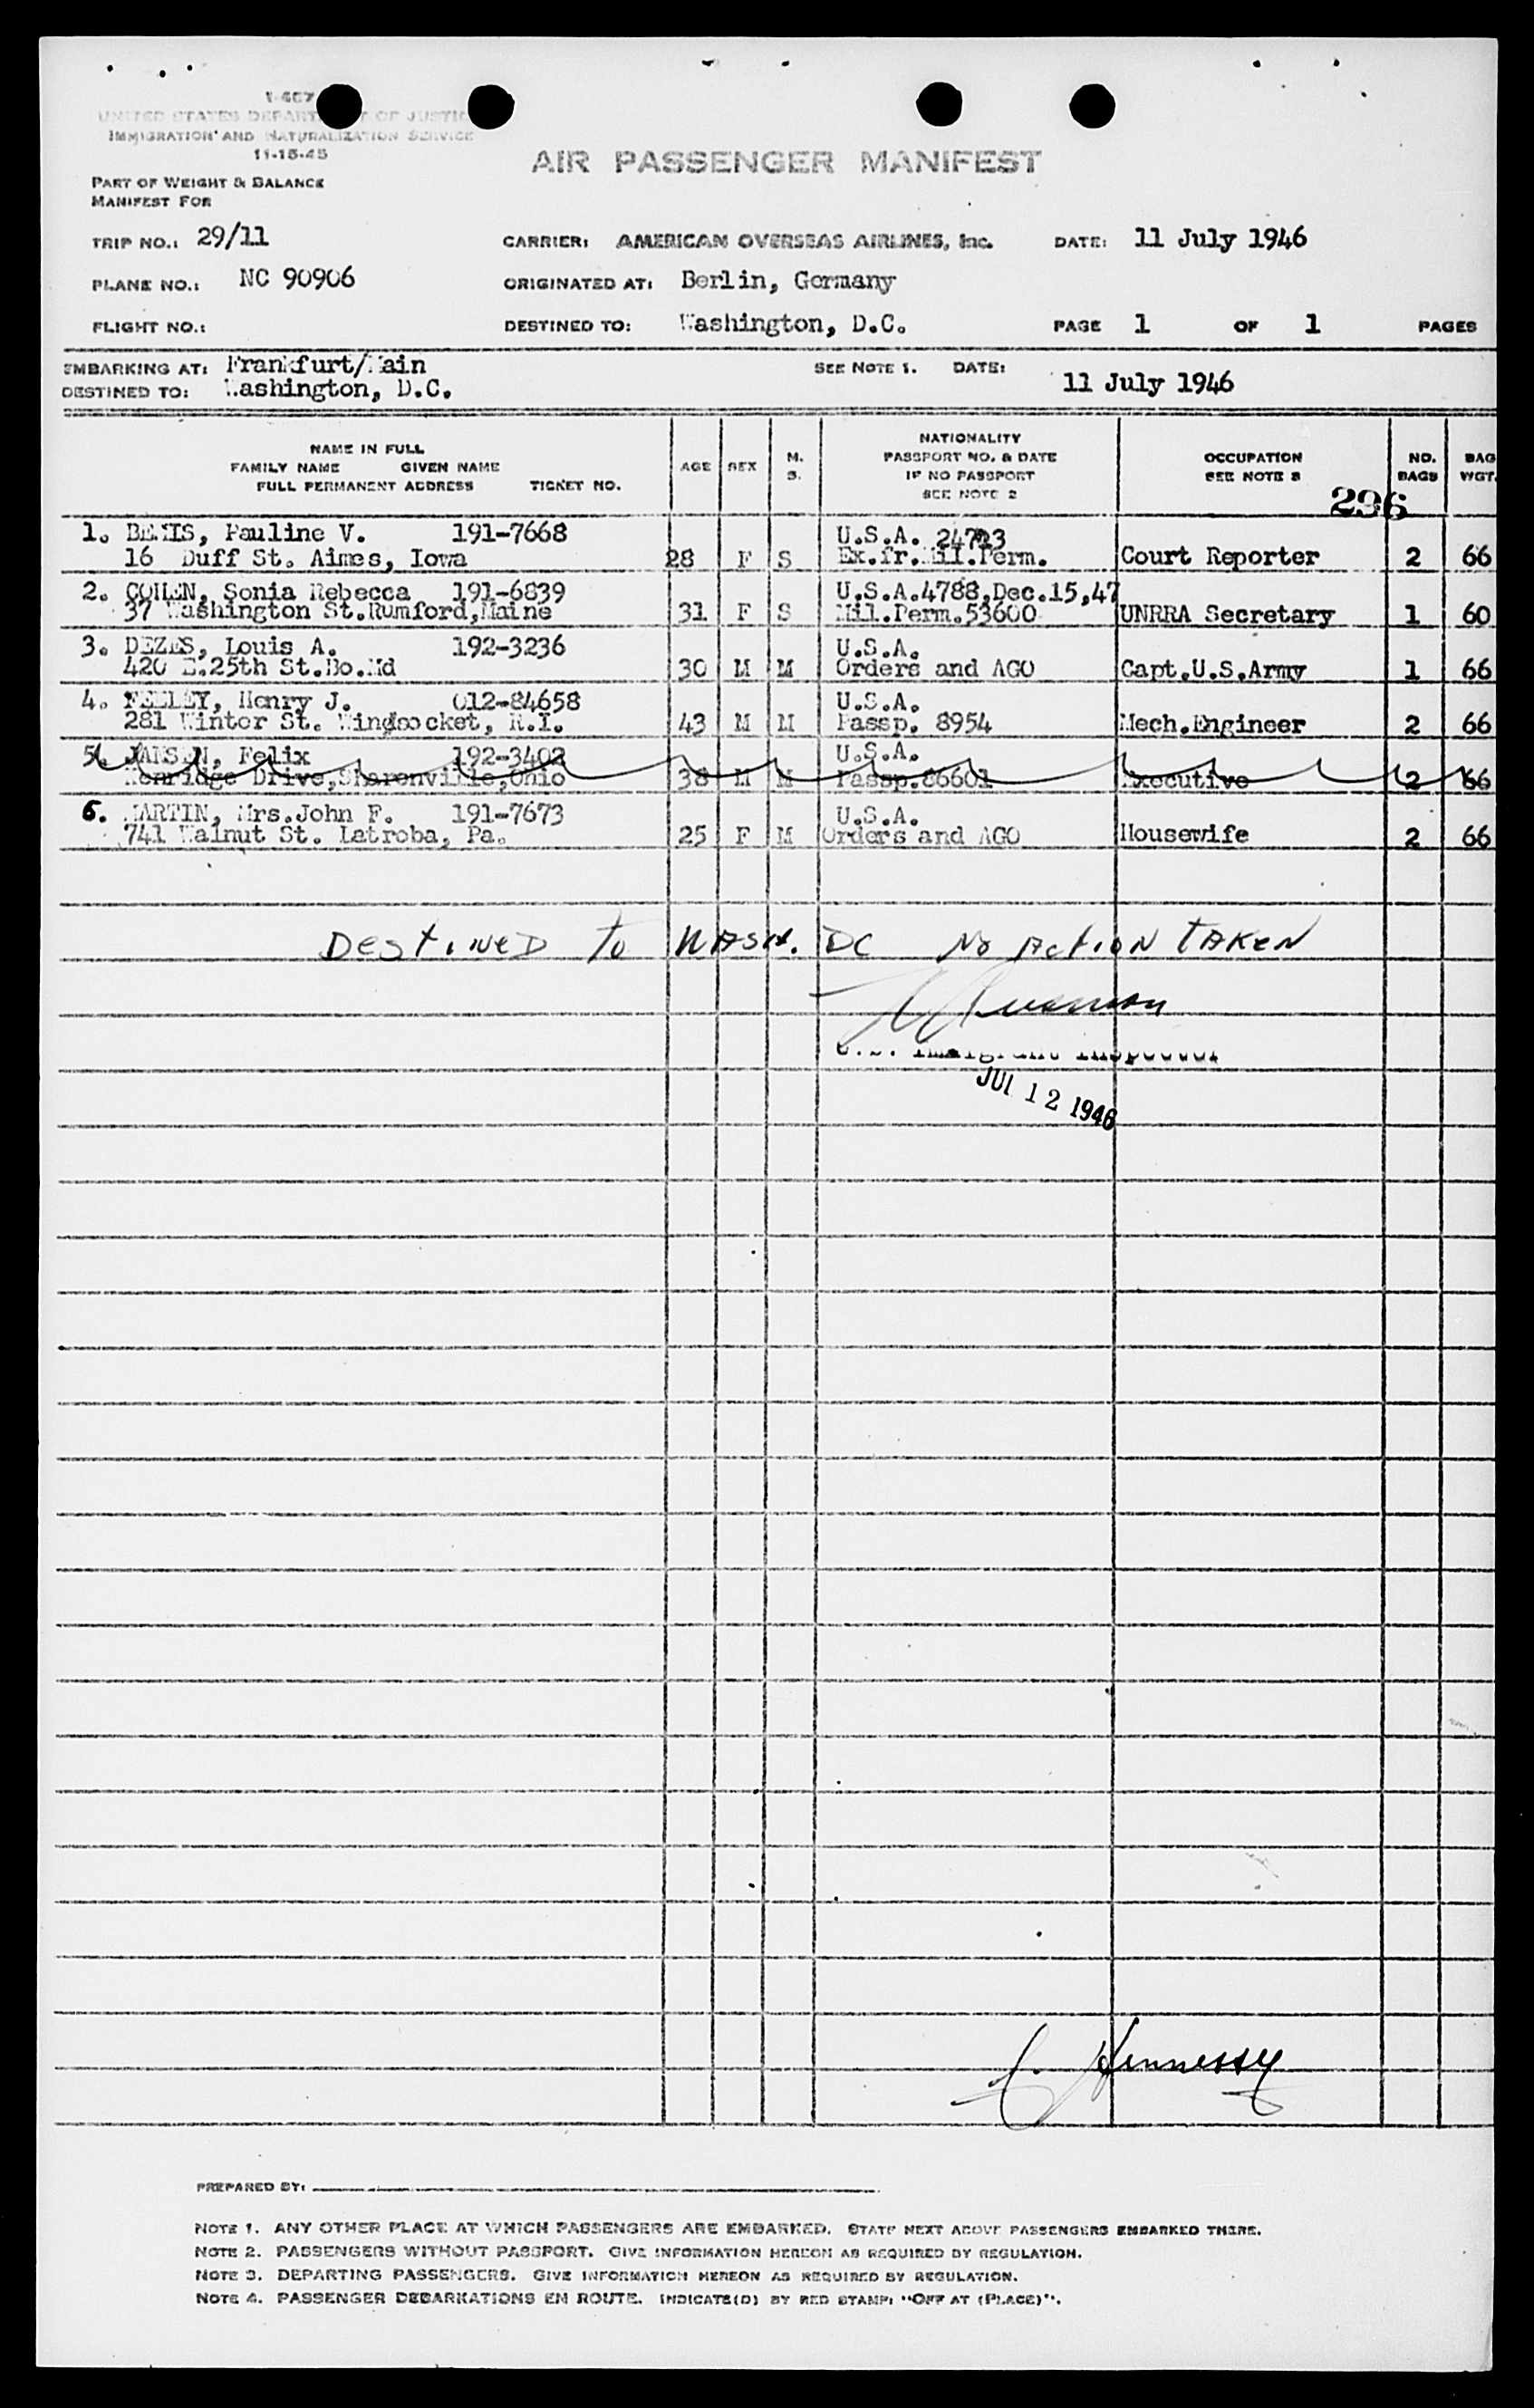 I-467
UNITED STATES DEPARTMENT OF JUSTICE
IMMIGRATION AND NATURALIZATION SERVICE
11-15-45
AIR PASSENGER MANIFEST
PART OF WEIGHT & BALANCE
MANIFEST FOR
TRIP NO.: 29/11 CARRIER: AMERICAN OVERSEAS AIRLINES, Inc. DATE: 11 July 1946
PLANE NO.: NC 90906 ORIGINATED AT: Berlin, Germany
FLIGHT NO.: DESTINED TO: Washington, D.C. PAGE 1 OF 1 PAGES
EMBARKING AT: Frankfurt/Main SEE NOTE 1. DATE: 11 July 1946
DESTINED TO: Washington, D.C.
NAME IN FULL
FAMILY NAME GIVEN NAME
FULL PERMANENT ADDRESS TICKET NO.
AGE SEX M. S.
NATIONALITY
PASSPORT NO. & DATE
IF NO PASSPORT
SEE NOTE 2
OCCUPATION
SEE NOTE 3
NO. BAGS
BAG WGT.
296
1. BEMIS, Pauline V. 191-7668 U.S.A. 24723
16 Duff St. Aimes, Iowa 28 F S Ex.fr.Mil.Perm. Court Reporter 2 66
2. COHEN, Sonia Rebecca 191-6839 U.S.A.4788,Dec.15,47
37 Washington St.Rumford,Maine 31 F S Mil.Perm.53600 UNRRA Secretary 1 60
3. DEZES, Louis A. 192-3236 U.S.A.
420 E.25th St.Bo.Md 30 M M Orders and AGO Capt.U.S.Army 1 66
4. FELLEY, Henry J. 012-84658 U.S.A.
281 Winter St. Windsocket, R.I. 43 M M Passp. 8954 Mech.Engineer 2 66
5. JANSEN, Felix 192-3402 U.S.A.
Kenridge Drive,Sharonville,Ohio 38 M M Passp.86601 Executive 2 66
6. MARTIN, Mrs.John F. 191-7673 U.S.A.
741 Walnut St. Latroba, Pa. 25 F M Orders and AGO Housewife 2 66
DestiNeD To WASH. DC No ActioN TAKeN
U.S. Immigrant Inspector
JUL 12 1946
C. Hennessy
PREPARED BY:
NOTE 1. ANY OTHER PLACE AT WHICH PASSENGERS ARE EMBARKED. STATE NEXT ABOVE PASSENGERS EMBARKED THERE.
NOTE 2. PASSENGERS WITHOUT PASSPORT. GIVE INFORMATION HEREON AS REQUIRED BY REGULATION.
NOTE 3. DEPARTING PASSENGERS. GIVE INFORMATION HEREON AS REQUIRED BY REGULATION.
NOTE 4. PASSENGER DEBARKATIONS EN ROUTE. INDICATE(D) BY RED STAMP: "OFF AT (PLACE)".